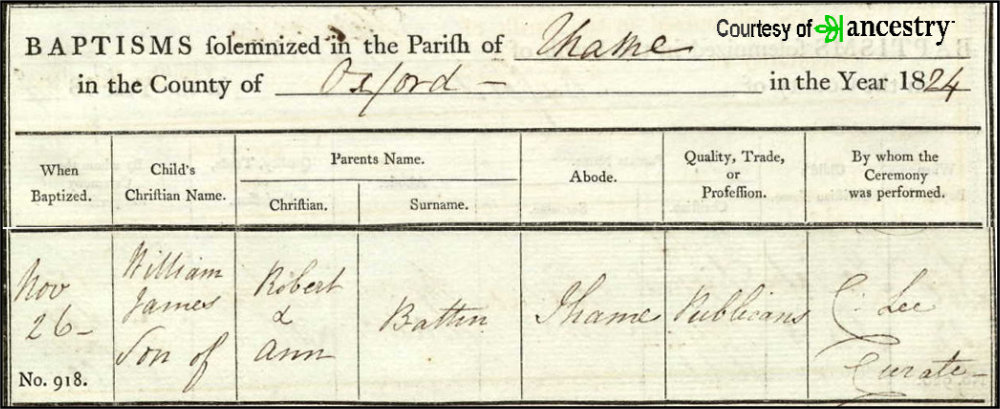 Courtesy of ancestry
BAPTISMS solemnized in the Parish of Thame
in the County of Oxford — in the Year 1824
When Baptized.
Child's Christian Name.
Parents Name.
Christian.
Surname.
Abode.
Quality, Trade, or Profession.
By whom the Ceremony was performed.
Nov
26 -
No. 918.
William
James
Son of
Robert
&
Ann
Battin
Thame
Publicans
C. Lee
Curate -